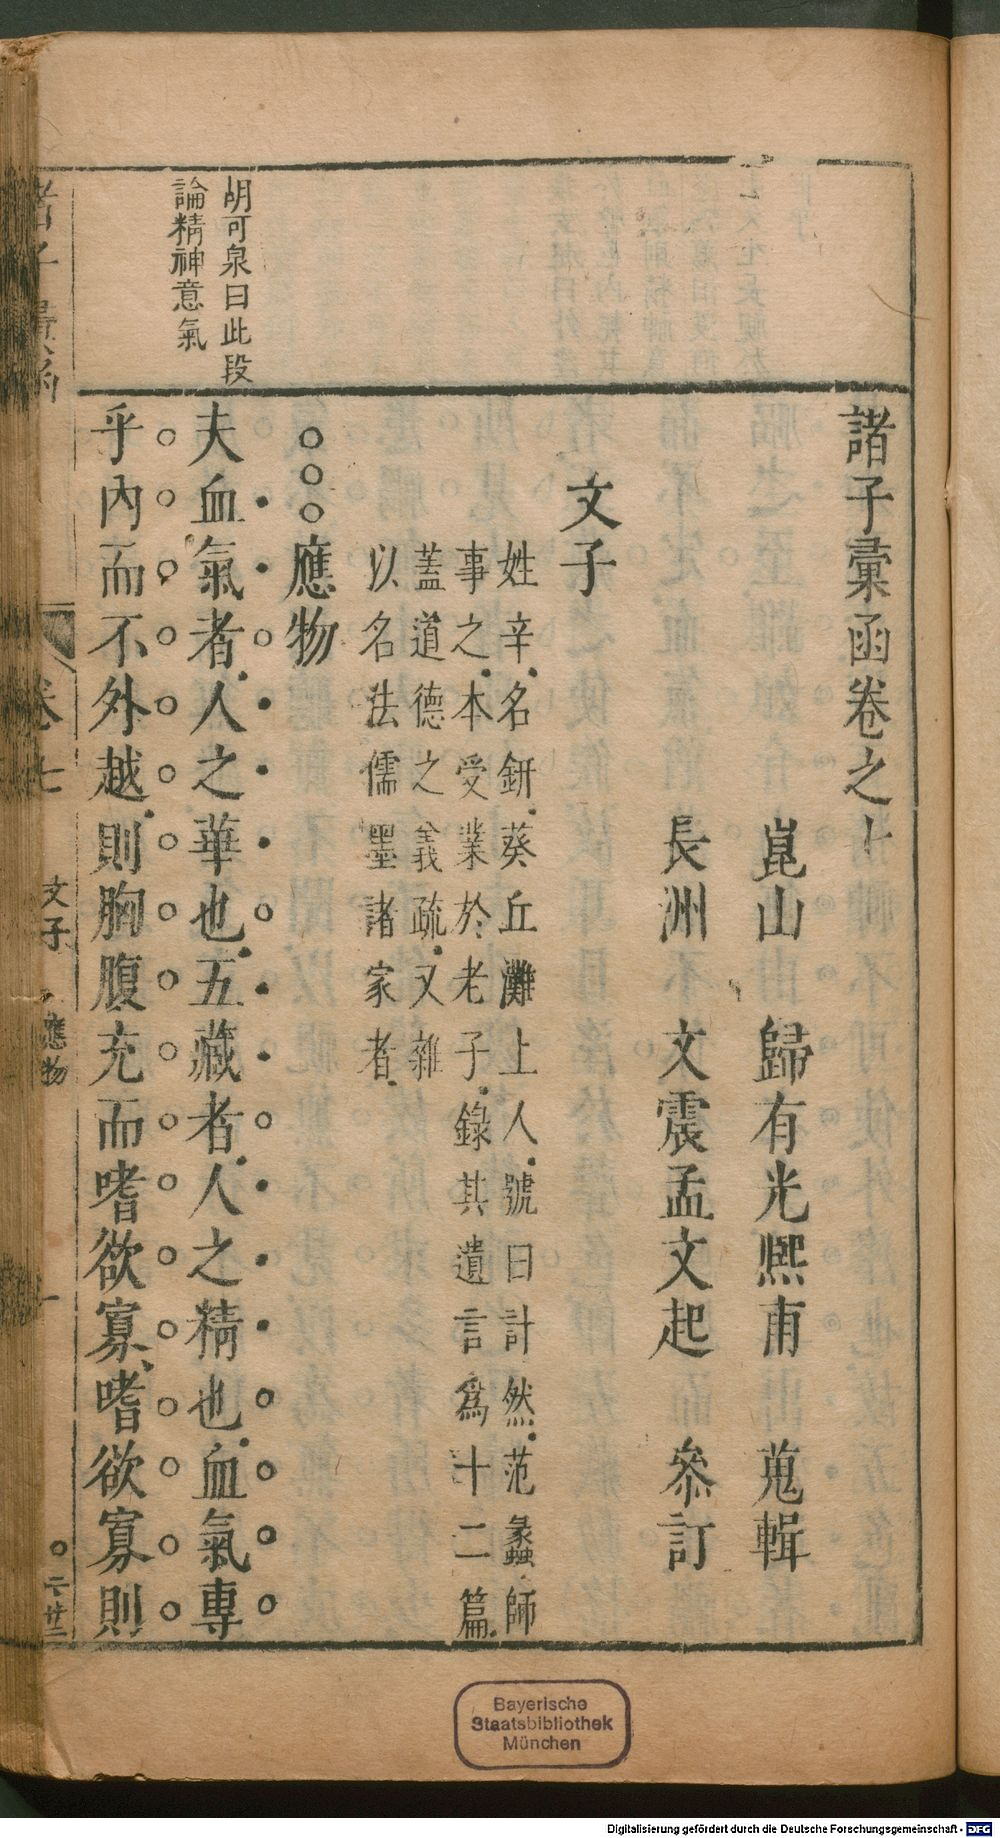 諸子彙函卷之七
崑山 歸有光熙甫 蒐輯
長洲 文震孟文起 叅訂
文子
姓辛名鈃葵丘濮上人號曰計然范蠡師
事之本受業於老子錄其遺言爲十二篇
蓋道德之義疏又雜
以名法儒墨諸家者
應物
胡可泉曰此段
論精神意氣
夫血氣者人之華也五藏者人之精也血氣專
乎內而不外越則胸腹充而嗜欲寡嗜欲寡則
卷七
文子
應物
Bayerische
Staatsbibliothek
München
Digitalisierung gefördert durch die Deutsche Forschungsgemeinschaft - DFG